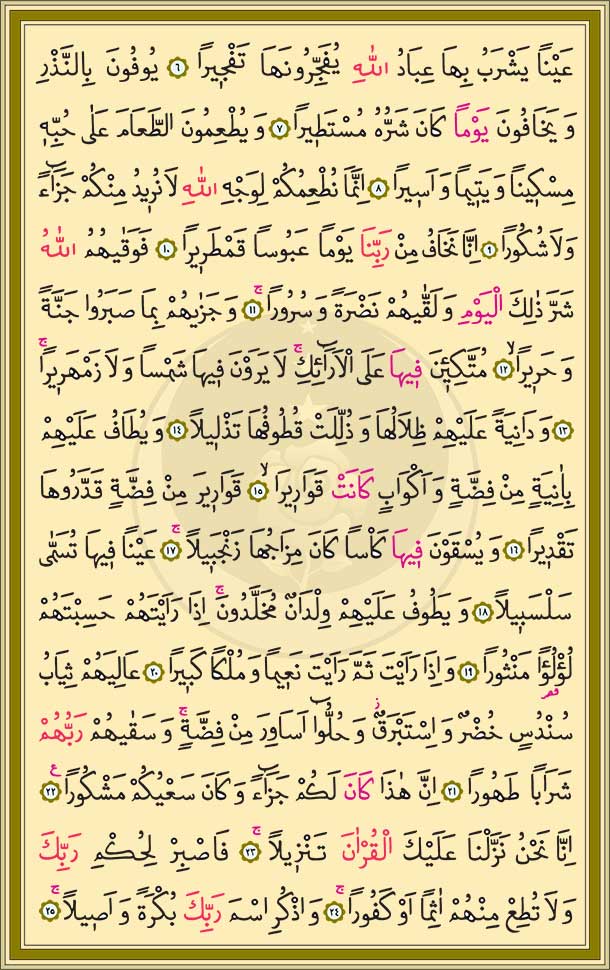 عَيْنًا يَشْرَبُ بِهَا عِبَادُ اللّٰهِ يُفَجِّرُونَهَا تَفْج۪يرًا ﴿٦﴾ يُوفُونَ بِالنَّذْرِ
وَيَخَافُونَ يَوْمًا كَانَ شَرُّهُ مُسْتَط۪يرًا ﴿٧﴾ وَيُطْعِمُونَ الطَّعَامَ عَلٰى حُبِّه۪
مِسْك۪ينًا وَيَت۪يمًا وَاَس۪يرًا ﴿٨﴾ اِنَّمَا نُطْعِمُكُمْ لِوَجْهِ اللّٰهِ لَا نُر۪يدُ مِنْكُمْ جَزَٓاءً
وَلَا شُكُورًا ﴿٩﴾ اِنَّا نَخَافُ مِنْ رَبِّنَا يَوْمًا عَبُوسًا قَمْطَر۪يرًا ﴿١٠﴾ فَوَقٰيهُمُ اللّٰهُ
شَرَّ ذٰلِكَ الْيَوْمِ وَلَقّٰيهُمْ نَضْرَةً وَسُرُورًاۚ ﴿١١﴾ وَجَزٰيهُمْ بِمَا صَبَرُوا جَنَّةً
وَحَر۪يرًاۙ ﴿١٢﴾ مُتَّكِـ۪ٔينَ ف۪يهَا عَلَى الْاَرَٓائِكِۚ لَا يَرَوْنَ ف۪يهَا شَمْسًا وَلَا زَمْهَر۪يرًاۚ
﴿١٣﴾ وَدَانِيَةً عَلَيْهِمْ ظِلَالُهَا وَذُلِّلَتْ قُطُوفُهَا تَذْل۪يلًا ﴿١٤﴾ وَيُطَافُ عَلَيْهِمْ
بِاٰنِيَةٍ مِنْ فِضَّةٍ وَاَكْوَابٍ كَانَتْ قَوَار۪يرَاۙ ﴿١٥﴾ قَوَار۪يرَ مِنْ فِضَّةٍ قَدَّرُوهَا
تَقْد۪يرًا ﴿١٦﴾ وَيُسْقَوْنَ ف۪يهَا كَأْسًا كَانَ مِزَاجُهَا زَنْجَب۪يلًاۚ ﴿١٧﴾ عَيْنًا ف۪يهَا تُسَمّٰى
سَلْسَب۪يلًا ﴿١٨﴾ وَيَطُوفُ عَلَيْهِمْ وِلْدَانٌ مُخَلَّدُونَۚ اِذَا رَاَيْتَهُمْ حَسِبْتَهُمْ
لُؤْلُؤًا مَنْثُورًا ﴿١٩﴾ وَاِذَا رَاَيْتَ ثَمَّ رَاَيْتَ نَع۪يمًا وَمُلْكًا كَب۪يرًا ﴿٢٠﴾ عَالِيَهُمْ ثِيَابُ
سُنْدُسٍ خُضْرٌ وَاِسْتَبْرَقٌۘ وَحُلُّٓوا اَسَاوِرَ مِنْ فِضَّةٍۚ وَسَقٰيهُمْ رَبُّهُمْ
شَرَابًا طَهُورًا ﴿٢١﴾ اِنَّ هٰذَا كَانَ لَكُمْ جَزَٓاءً وَكَانَ سَعْيُكُمْ مَشْكُورًا ﴿٢٢﴾
اِنَّا نَحْنُ نَزَّلْنَا عَلَيْكَ الْقُرْاٰنَ تَنْز۪يلًاۚ ﴿٢٣﴾ فَاصْبِرْ لِحُكْمِ رَبِّكَ
وَلَا تُطِعْ مِنْهُمْ اٰثِمًا اَوْ كَفُورًاۚ ﴿٢٤﴾ وَاذْكُرِ اسْمَ رَبِّكَ بُكْرَةً وَاَص۪يلًاۚ ﴿٢٥﴾